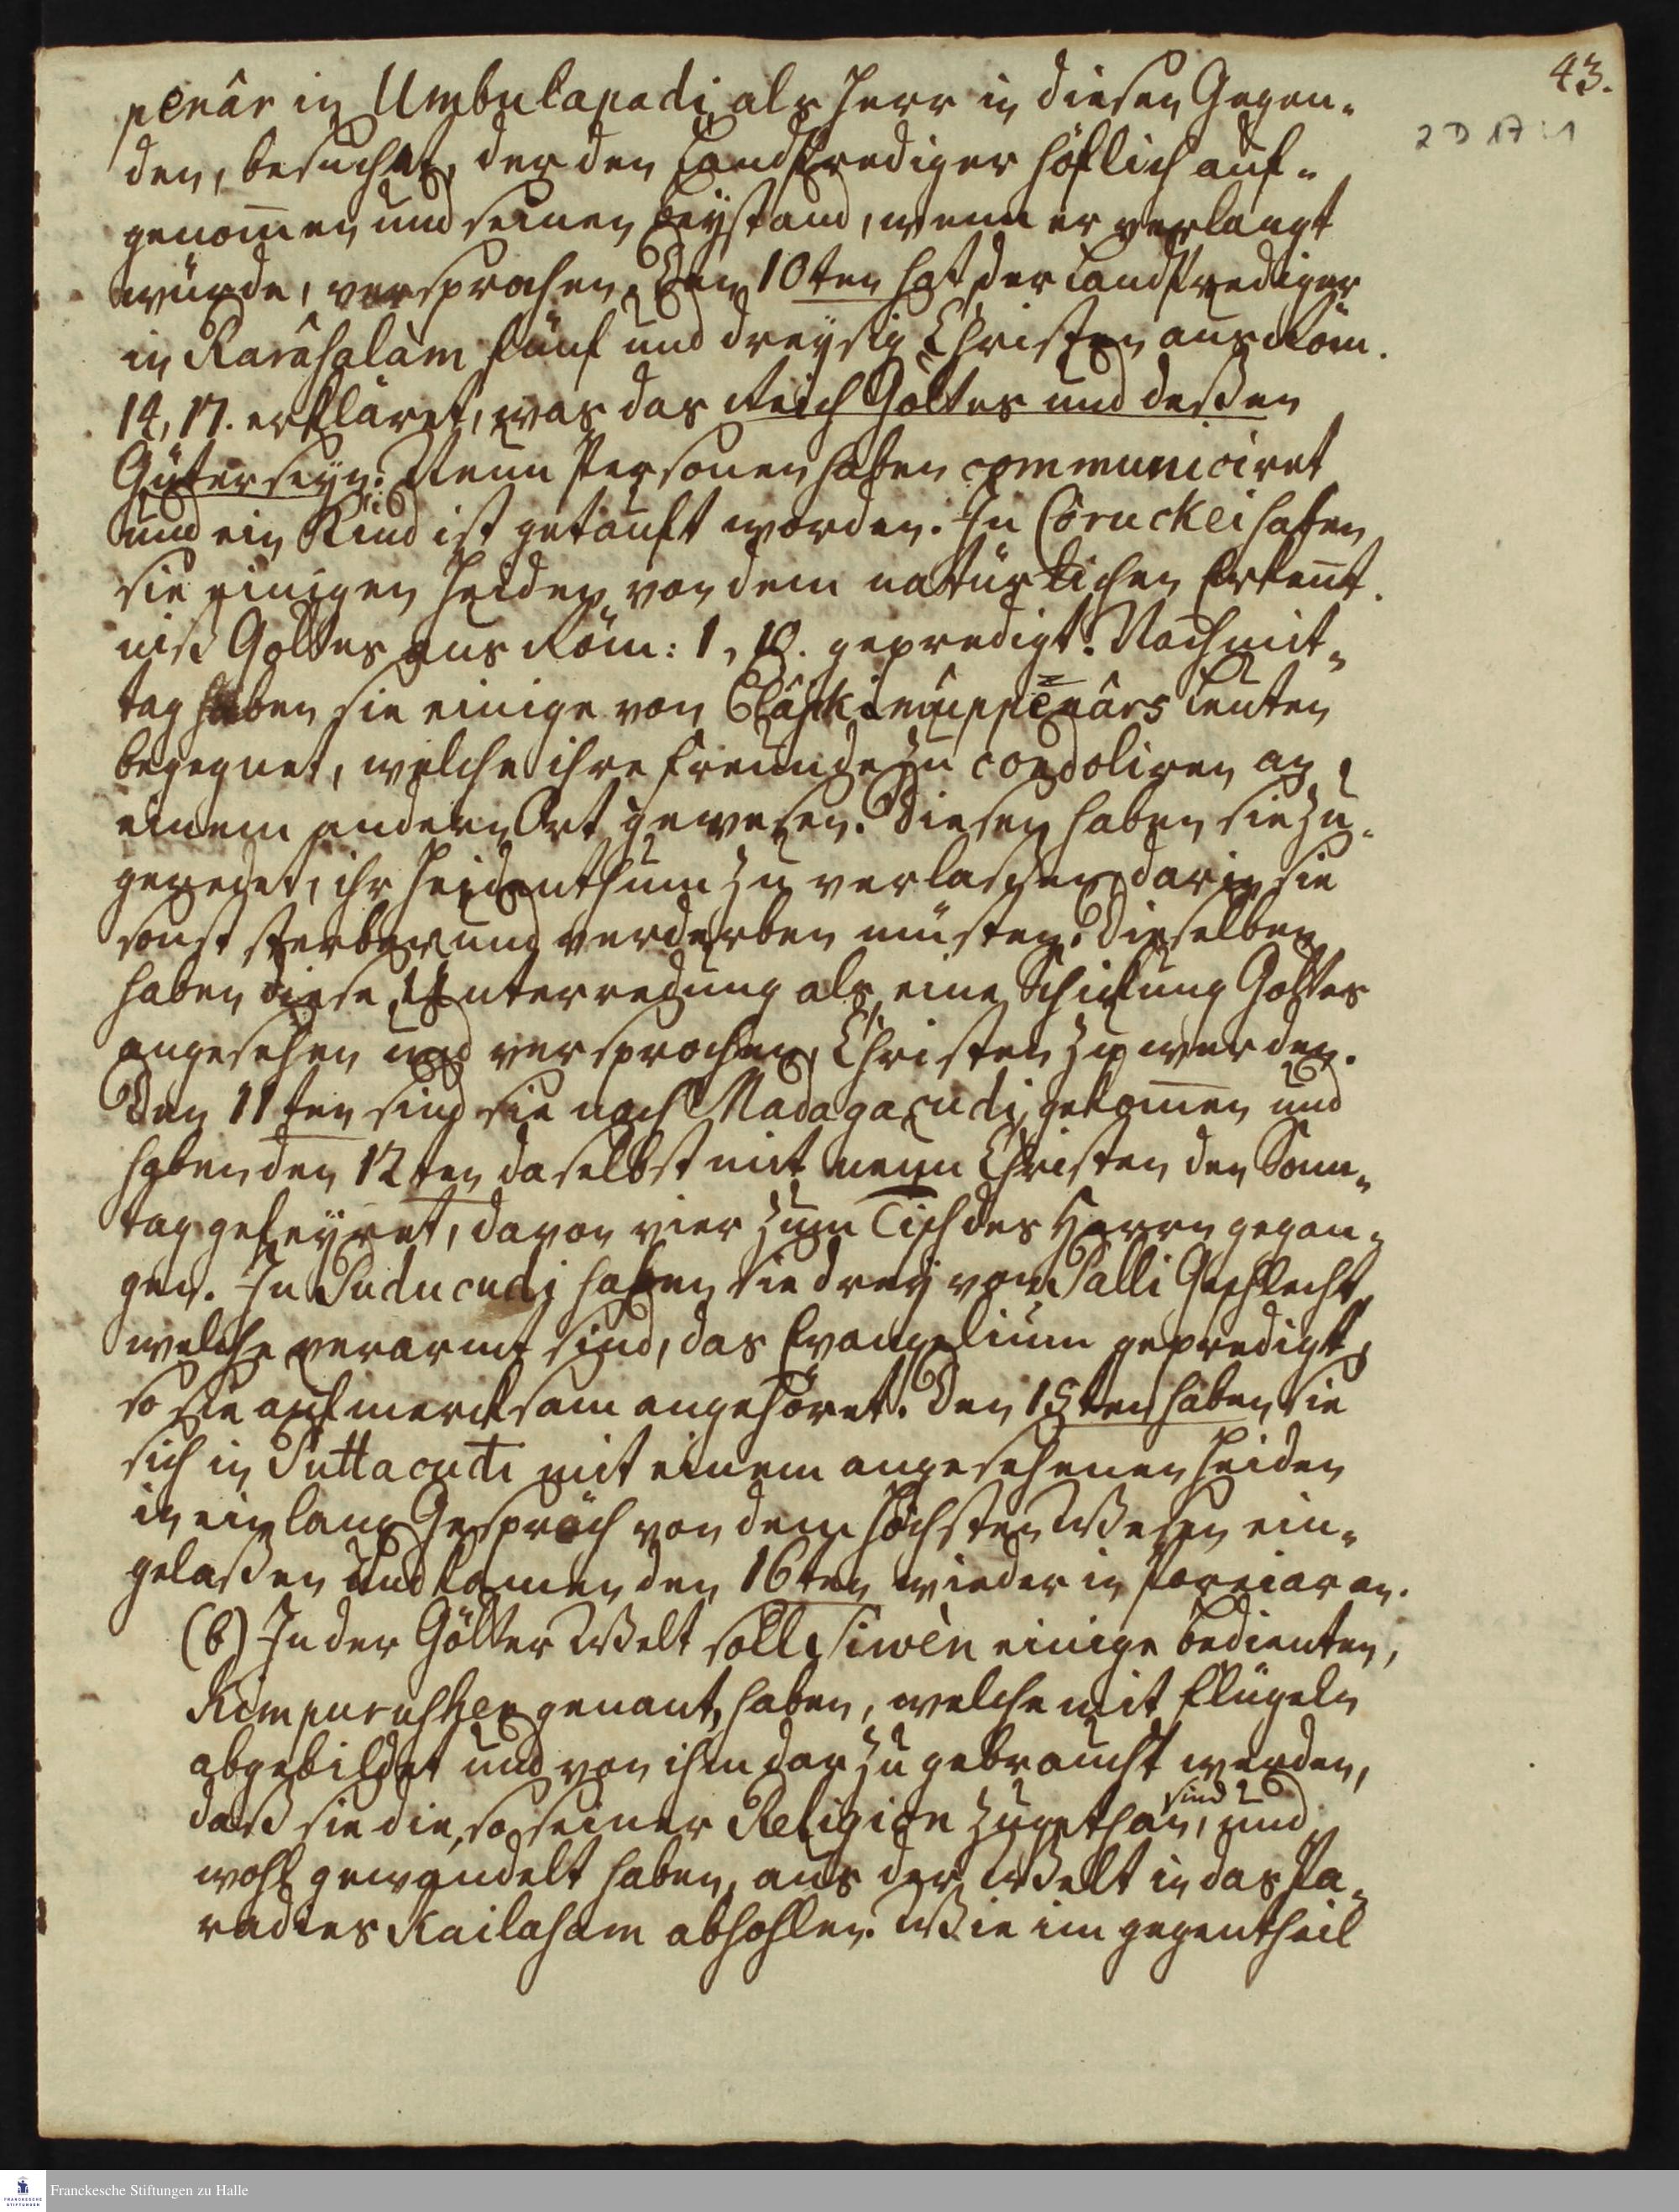 43.
2 D 17 : 1
penâr in Umbulapadi als Herr in diesen Gegen-
den, besuchet, der den Landprediger höflich auf-
genom̄en und seinen Beystand, wenn er verlangt
würde, versprochen. Den 10ten hat der Landprediger
in Rarâhalàm fünf und dreysig Christen aus Röm.
14, 17. erkläret, was das Reich Gottes und deßen
Güter seyn. Neun Personen haben communiciret
und ein Kind ist getauft worden. In Côruckei haben
sie einigen Heiden von dem natürlichen Erkent-
niß Gottes aus Röm: 1, 18. gepredigt. Nachmit-
tag haben sie einige von leuten
begegnet, welche ihre Freunde zu condoliren an
einem andern Ort gewesen. Diesen haben sie zu-
geredet, ihr Heidenthum zu verlassen, darin sie
sonst sterben und verderben müsten. Dieselben
haben diese Unterredung als eine Schickung Gottes
angesehen und versprochen, Christen zu werden.
Den 11ten sind sie nach Madagacudi gekom̄en und
haben den 12ten daselbst mit neun Christen den Sonn-
tag gefeyret, davon vier zum Tisch des Herrn gegan-
gen. In Puducudi haben sie drey vom Palli Geschlecht,
welche verarmt sind, das Evangelium gepredigt,
so sie aufmercksam angehöret. Den 15ten haben sie
sich in Puttacudi mit einem angesehenen Heiden
in ein lang Gespräch von dem höchsten Wesen ein-
gelaßen und kamen den 16ten wieder in Poreiar an.
(b) In der Götter Welt soll Siwèn einige Bedienten,
Kimpurushen genant, haben, welche mit Flügeln
abgebildet und von ihm darzu gebraucht werden,
daß sie die, so seiner Religion zugethan sind, und
wohl gewandelt haben, aus der Welt in das Pa-
radies Kailasam abhohlen. Wie im gegentheil
Franckesche Stiftungen zu Halle